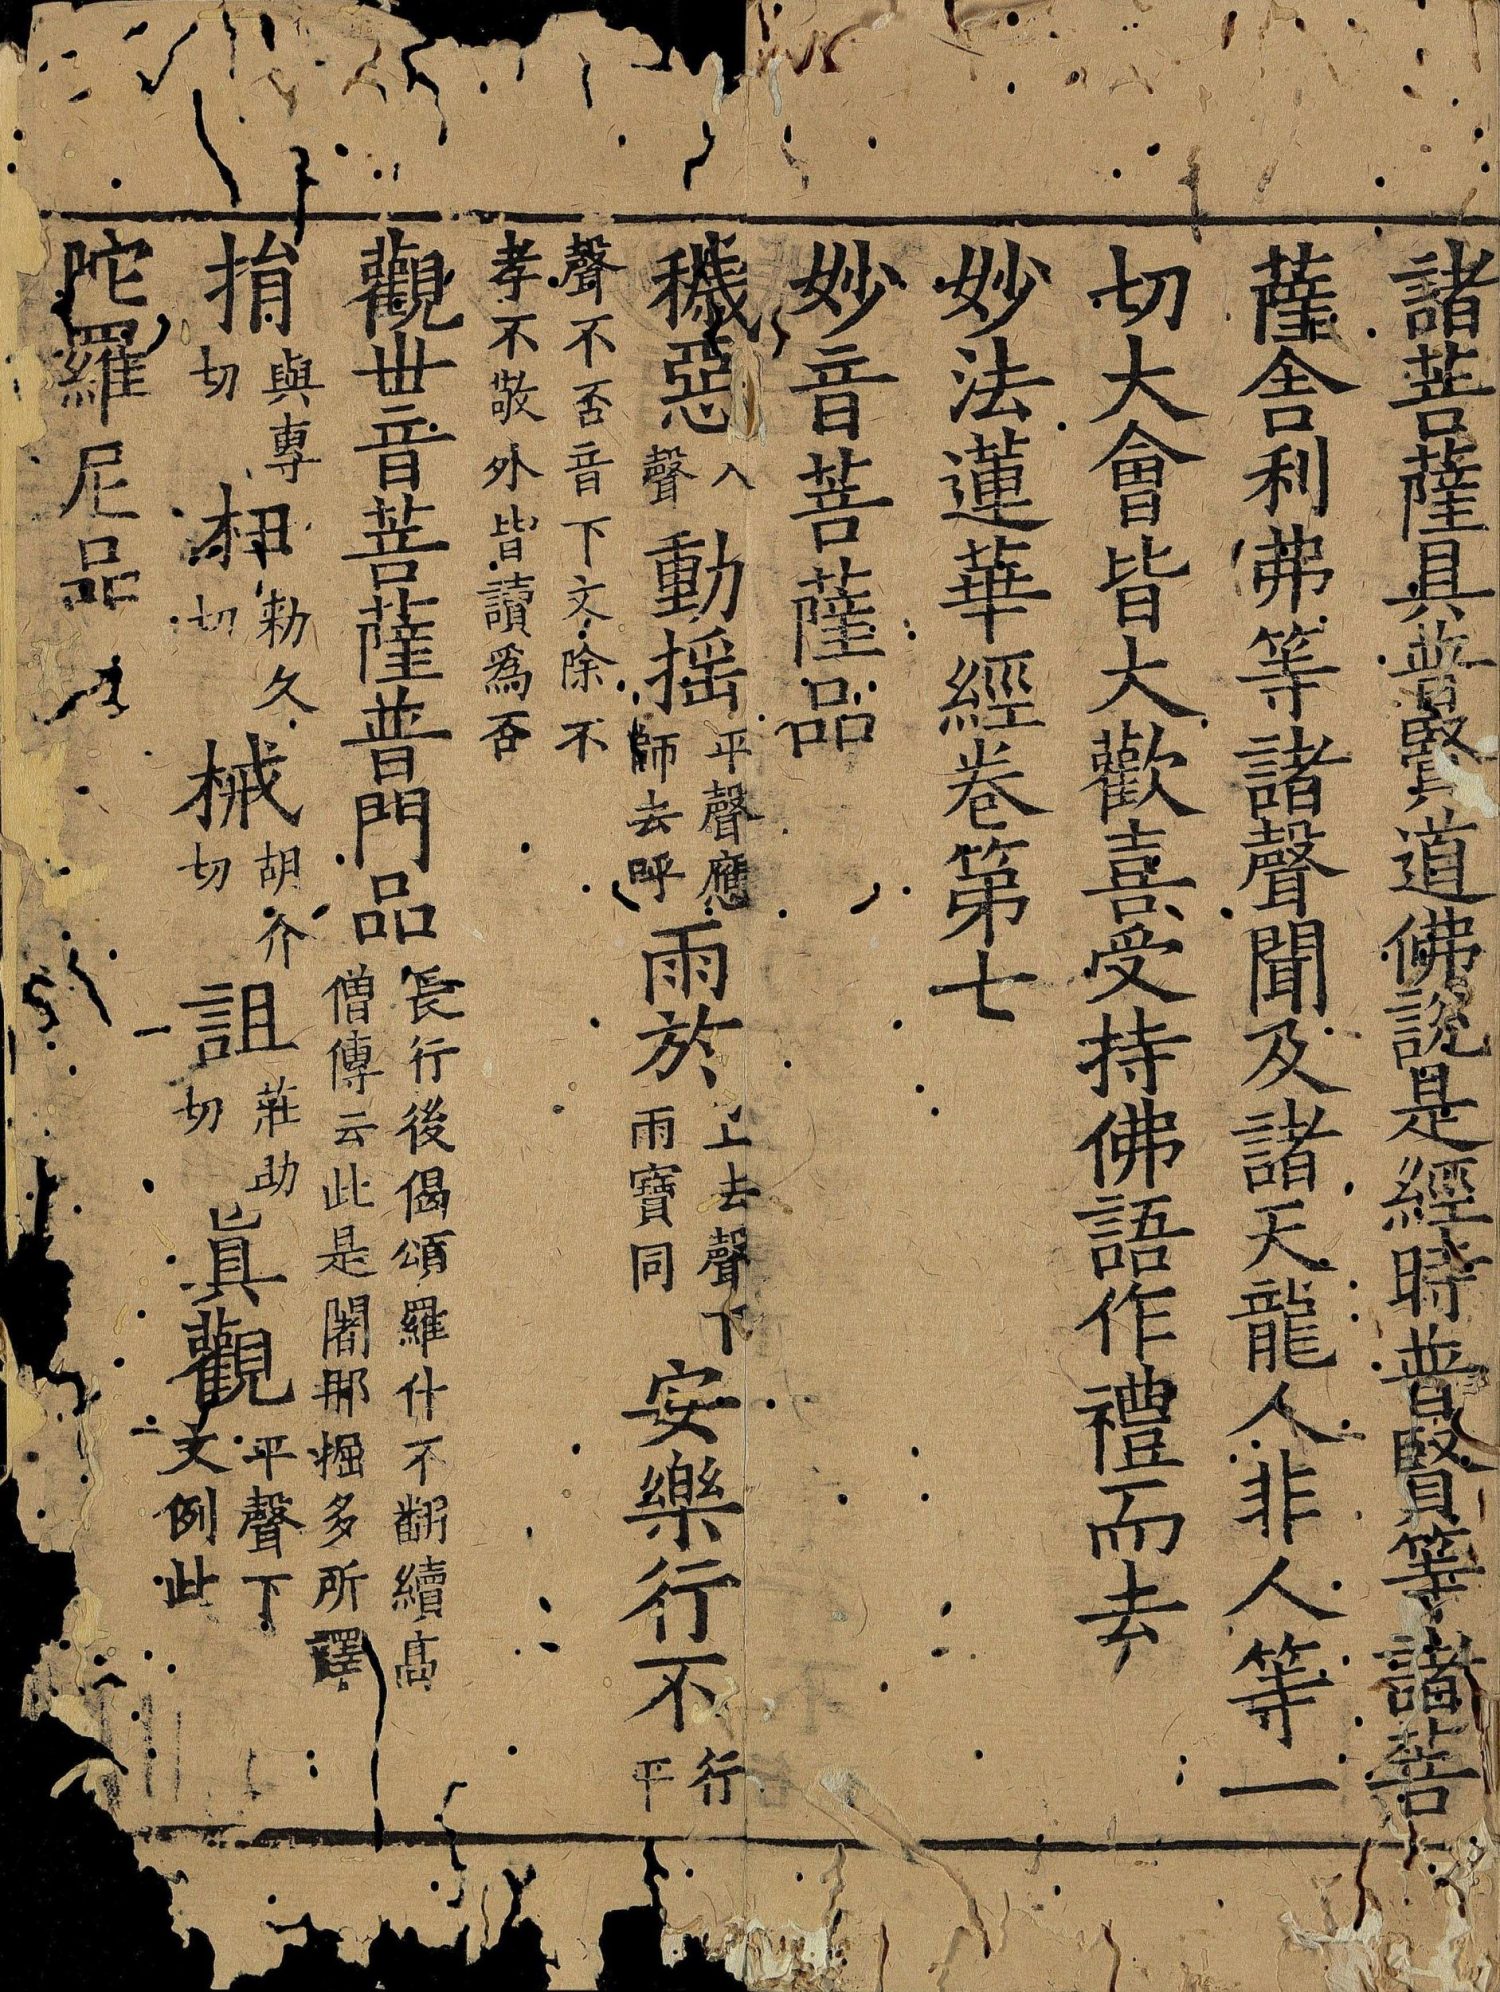 諸菩薩具普賢道佛說是經時普賢等諸菩
薩舍利弗等諸聲聞及諸天龍人非人等一
切大會皆大歡喜受持佛語作禮而去
妙法蓮華經卷第七
妙音菩薩品
穢惡入聲動摇平聲應師去呼雨於上去聲下雨寶同安樂行不行平
聲不否音下文除不孝不敬外皆讀爲否
觀世音菩薩普門品長行後偈頌羅什不翻續高僧傳云此是闍那掘多所譯
捐與專切杻勑久切械胡介切詛莊助切眞觀平聲下文例此
陀羅尼品